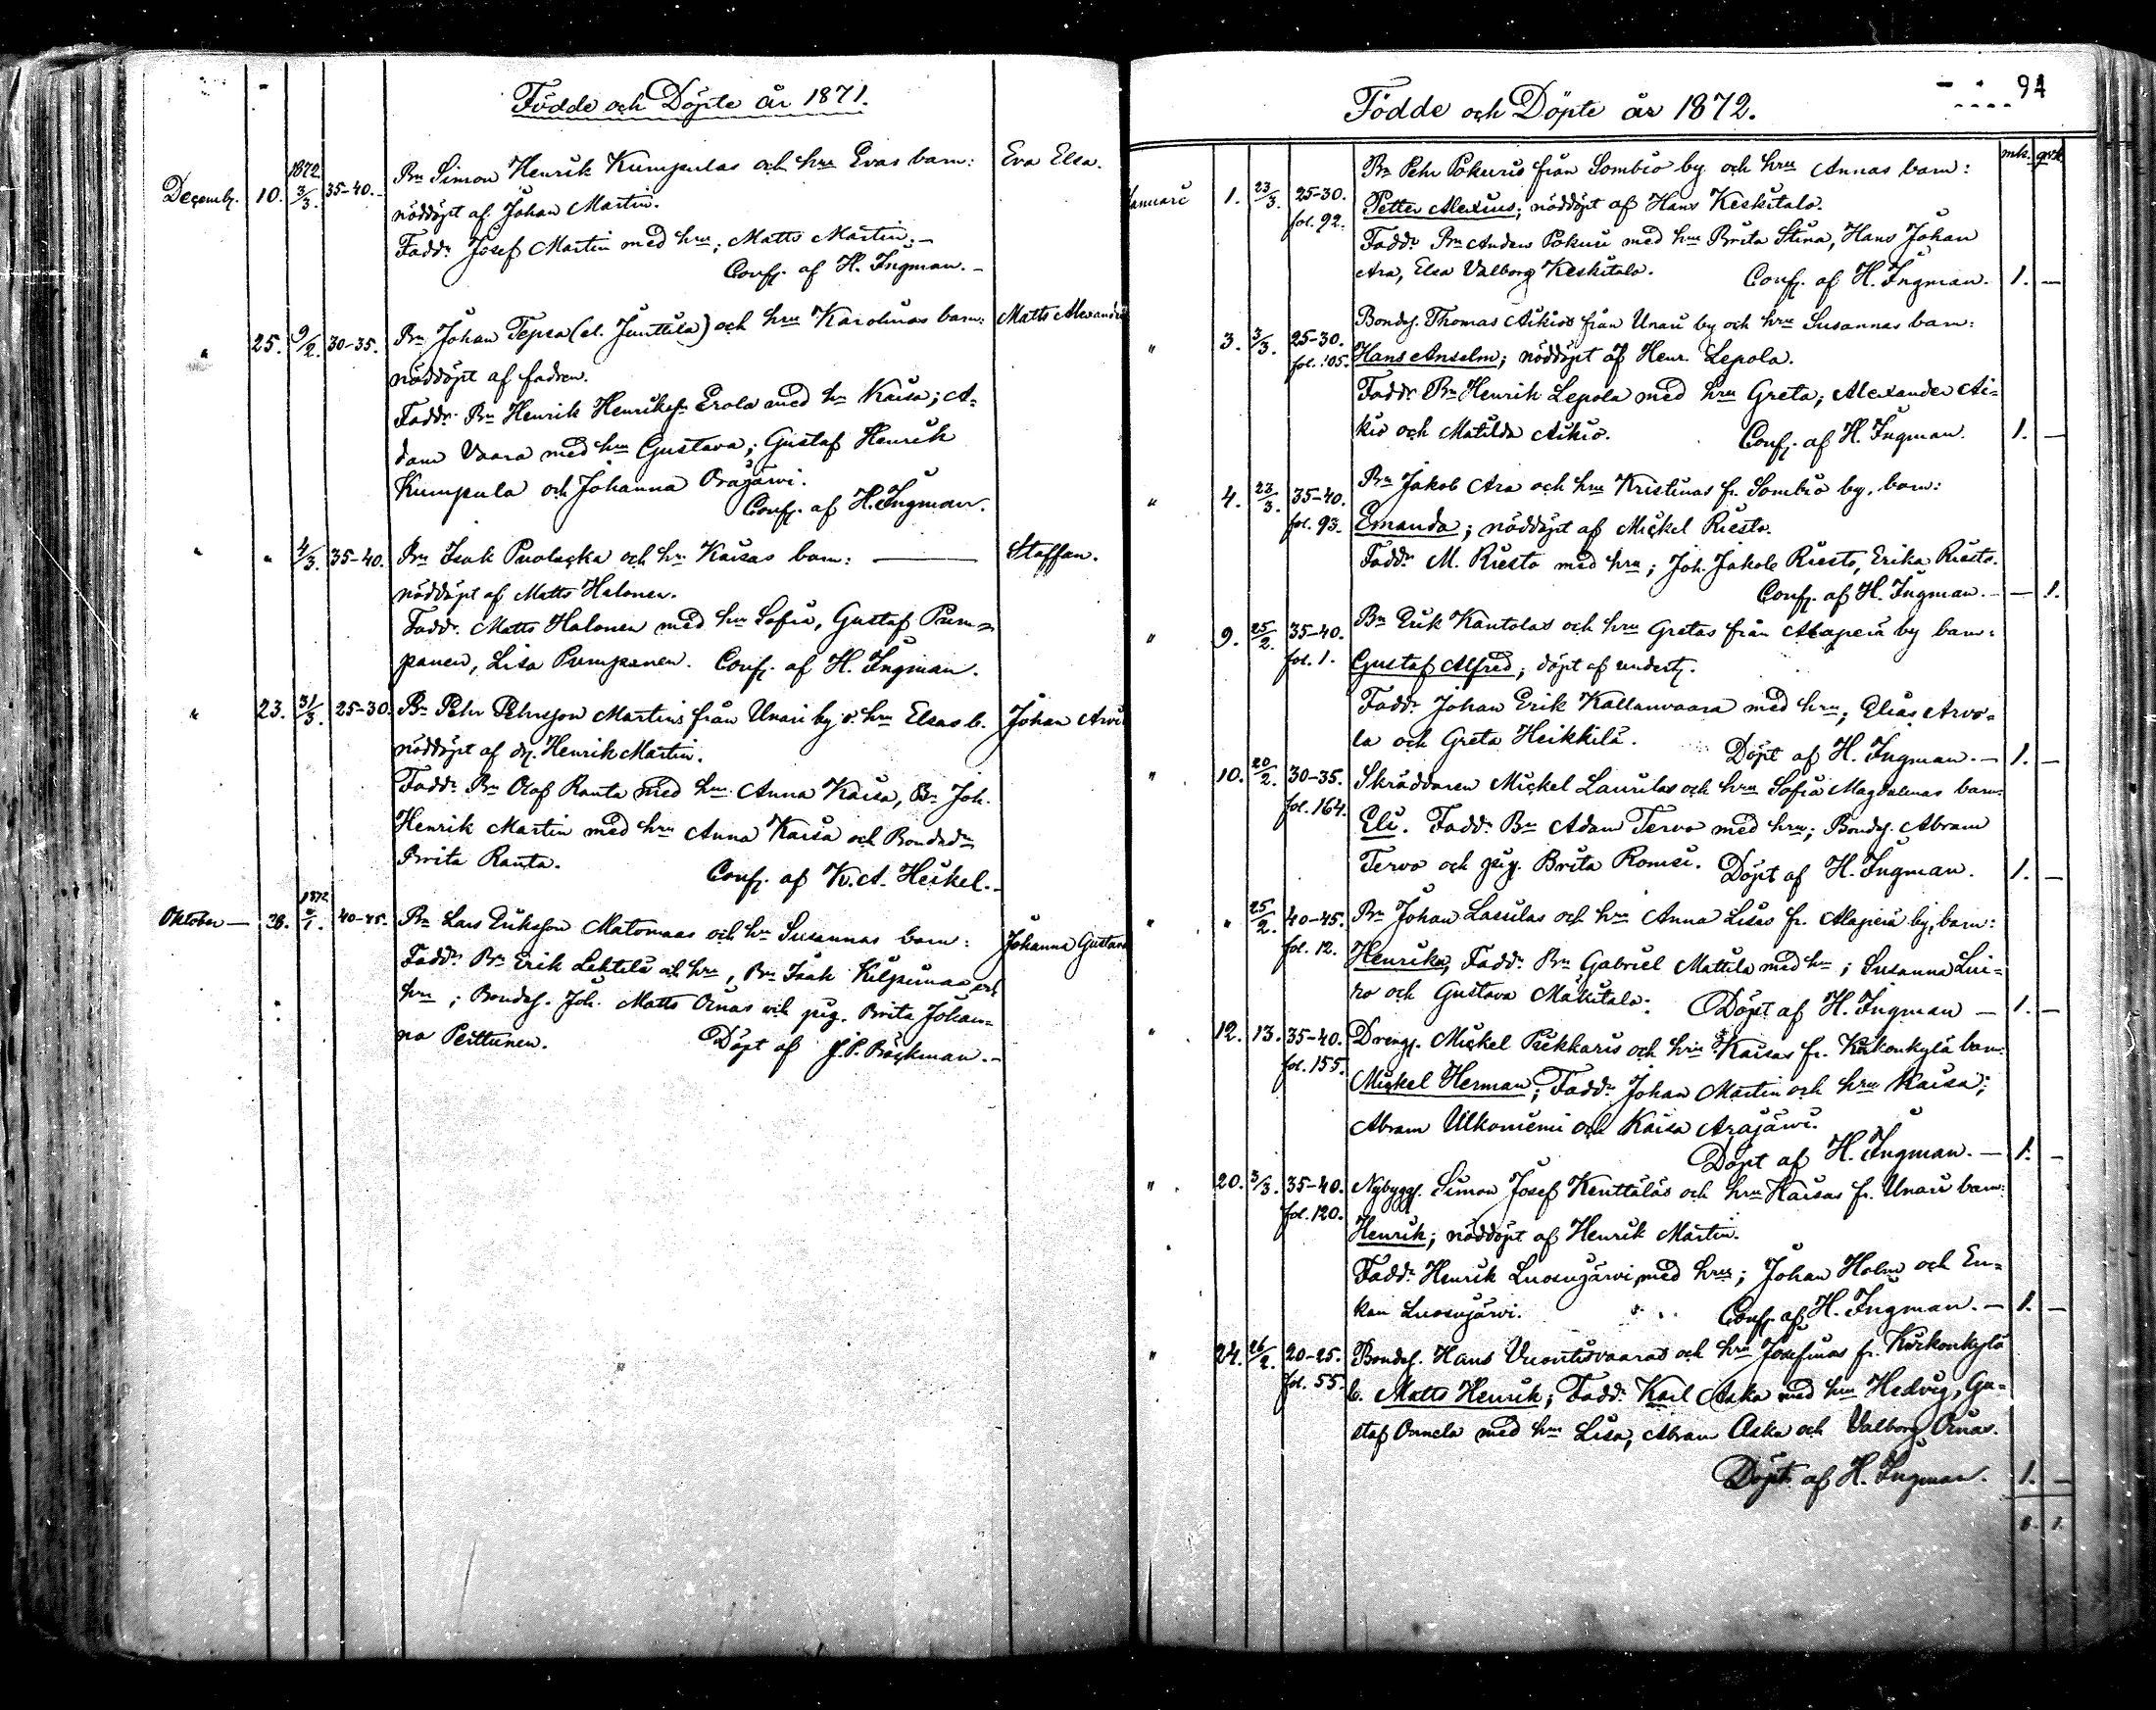 Födde och Döpte år 1871.
1872
Decemb. 10. 3/3. 35-40. Bn Simon Henrik Kumpulas och hru Evas barn: Eva Elsa.
nöddöpt af Johan Martin.
Faddr Josef Martin med hru; Matts Martin.
Conf. af H. Ingman.
" 25. 9/2. 30-35. Bn Johan Tepsa (el. Junttila) och hru Karolinas barn: Matts Alexander
nöddöpt af fadren.
Faddr. Bn Henrik Henriksn Erola med hu Kaisa; A-
dam Vaara med hru Gustava; Gustaf Henrik
Kumpula och Johanna Orajärvi.
Conf. af H. Ingman.
" " 4/3. 35-40. Bn Isak Puolacka och hru Kaisas barn: Staffan.
nöddöpt af Matts Halonen.
Faddr. Matts Halonen med hru Sofia, Gustaf Pum-
panen, Lisa Pumpanen. Conf. af H. Ingman.
" 23. 31/3. 25-30. Bn Pehr Pehrsson Martins från Unari by o. hru Elsas b. Johan Arvi
nöddöpt af Henrik Martin.
Faddr Bn Olof Ranta med hru Anna Kaisa, Bn Joh.
Henrik Martin med hru Anna Kaisa och Bonded:n
Brita Ranta. Conf. af K. A. Heikel.
1872
Oktober 40-45. Bn Lars Eriksson Matomaas och hu Susannas barn: Johanna Gustava
Faddr Bn Erik Lehtelä och hru, Bn Isak Kilpimaa och
hru; Bondes. Joh. Matts Ornas och pig. Brita Johan-
na Peittunen. Döpt af J. P. Bäckman.
94
Födde och Döpte år 1872.
mk. prk.
Januari 1. 23/3. 25-30. Bn Pehr Pokuris från Sombio by och hru Annas barn:
fol. 92. Petter Alexius; nöddöpt af Hans Keskitalo.
Faddr Bn Anders Pokuri med hru Brita Stina, Hans Johan
Ara, Elsa Valborg Keskitalo. Conf. af H. Ingman. 1. —
" 3. 3/3. 25-30. Bondes. Thomas Aikios från Unari by och hru Susannas barn:
fol. 105. Hans Anselm; nöddöpt af Henr. Lepola.
Faddr Bn Henrik Lepola med hru Greta; Alexander Ai-
kio och Matilda Aikio. Conf. af H. Ingman. 1. —
" 4. 23/3. 35-40. Bn Jakob Ara och hru Kristinas fr. Sombio by, barn:
fol. 93. Emanda; nöddöpt af Mickel Riesto.
Faddr M. Riesto med hru; Joh. Jakob Riesto, Erika Riesto.
Conf. af H. Ingman. — 1.
" 9. 25/2. 35-40. Bn Erik Kantolas och hru Gretas från Alaperä by barn:
fol. 1. Gustaf Alfred; döpt af undert.
Faddr Johan Erik Kallanvaara med hru; Elias Arvo-
la och Greta Heikkilä. Döpt af H. Ingman. 1. —
" 10. 20/2. 30-35. Skräddaren Mickel Laurilas och hru Sofia Magdalenas barn:
fol. 164. Eli. Faddr Bn Adam Tervo med hru; Bondes. Abram
Tervo och pig. Brita Romsi. Döpt af H. Ingman. 1. —
" " 25/2. 40-45. Bn Johan Lassilas och hru Anna Lisas fr. Alaperä by, barn:
fol. 12. Henrika, Faddr Bn Gabriel Mattila med hru; Susanna Lui-
ro och Gustava Mäkitalo. Döpt af H. Ingman — 1. —
" 12. 13. 35-40. Dreng. Mickel Pikkaris och hru Kaisas fr. Kirkonkylä barn:
fol. 155. Mickel Herman; Faddr Johan Martin och hru Kaisa;
Abram Ulkoniemi och Kaisa Arajärvi.
Döpt af H. Ingman. — 1. —
" 20. 3/3. 35-40. Nybygg. Simon Josef Kenttäläs och hru Kaisas fr. Unari barn:
fol. 120. Henrik; nöddöpt af Henrik Martin.
Faddr Henrik Luosujärvi med hru; Johan Holm och En-
kan Luosujärvi. Conf. af H. Ingman. — 1. —
" 24. 26/2. 20-25. Bondes. Hans Vuontisvaaras och hru Josefinas fr. Kirkonkylä
fol. 55. b. Matts Henrik; Faddr Karl Aska med hru Hedvig, Gu-
staf Onnela med hru Lisa, Abram Aska och Valborg Ornas.
Döpt af H. Ingman. 1. —
8. 1.